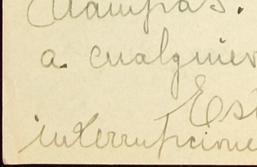 stampas.
a cualquier
Es
interrupcione